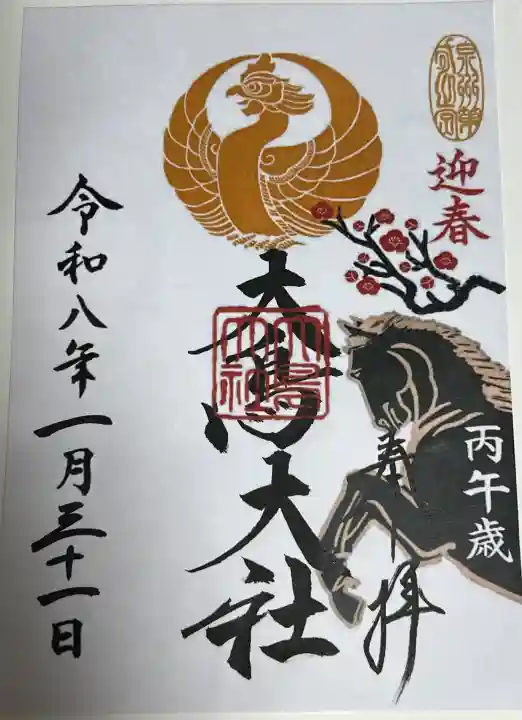 迎春
丙午歳
奉拝
大鳥大社
大鳥大社
令和八年一月三十一日